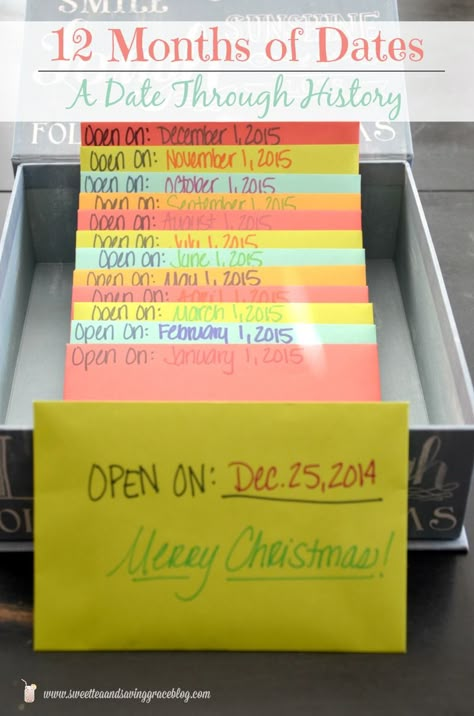 SMILE
SUNSHINE
12 Months of Dates
A Date Through History
FOL
AS
Open on: December 1, 2015
Open on: November 1, 2015
Open on: October 1, 2015
Open on: September 1, 2015
Open on: August 1, 2015
Open on: July 1, 2015
Open on: June 1, 2015
Open on: May 1, 2015
Open on: April 1, 2015
Open on: March 1, 2015
Open on: February 1, 2015
Open on: January 1, 2015
OPEN ON: Dec. 25, 2014
Merry Christmas!
FOL
AS
www.sweetteaandsavinggraceblog.com